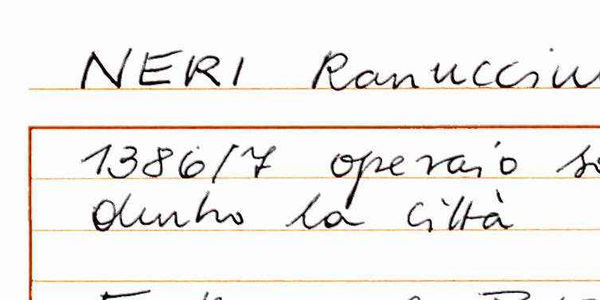 NERI Ranucciu
1386/7 operaio so
dentro la città